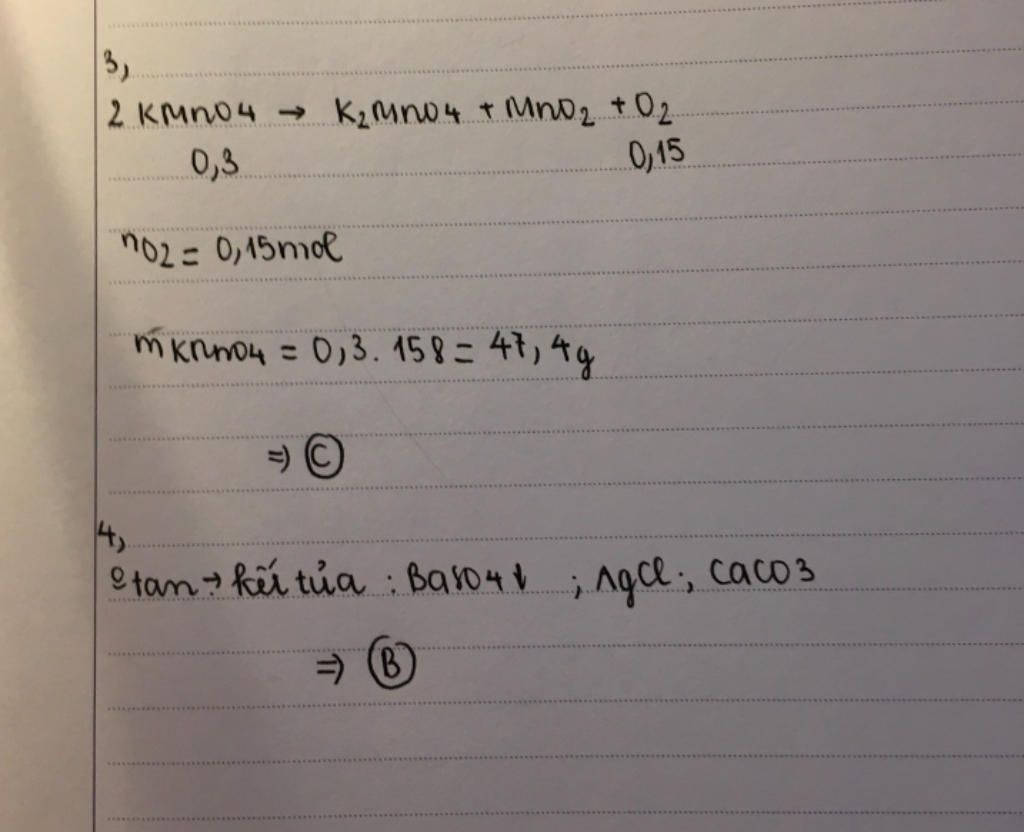 3,
2 KMnO4 → K2MnO4 + MnO2 + O2
0,3 0,15
nO2 = 0,15mol
mKMnO4 = 0,3. 158 = 47,4g
⇒ C
4,
o tan → kết tủa : BaSO4↓ ; AgCl ; CaCO3
⇒ B